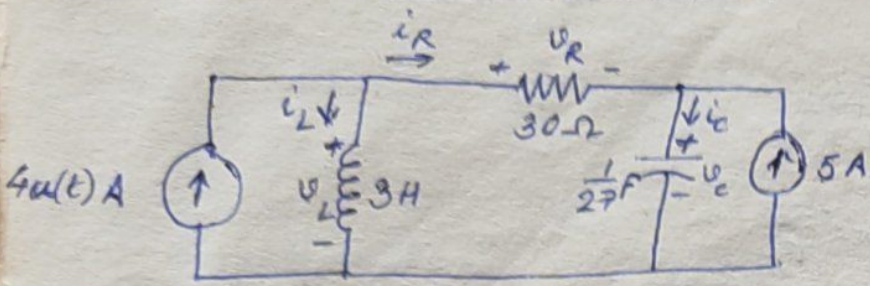 i_R
+ v_R -
30Ω
i_L
+
v_L
-
3H
4u(t) A
i_c
+
v_c
-
1/27 F
5A